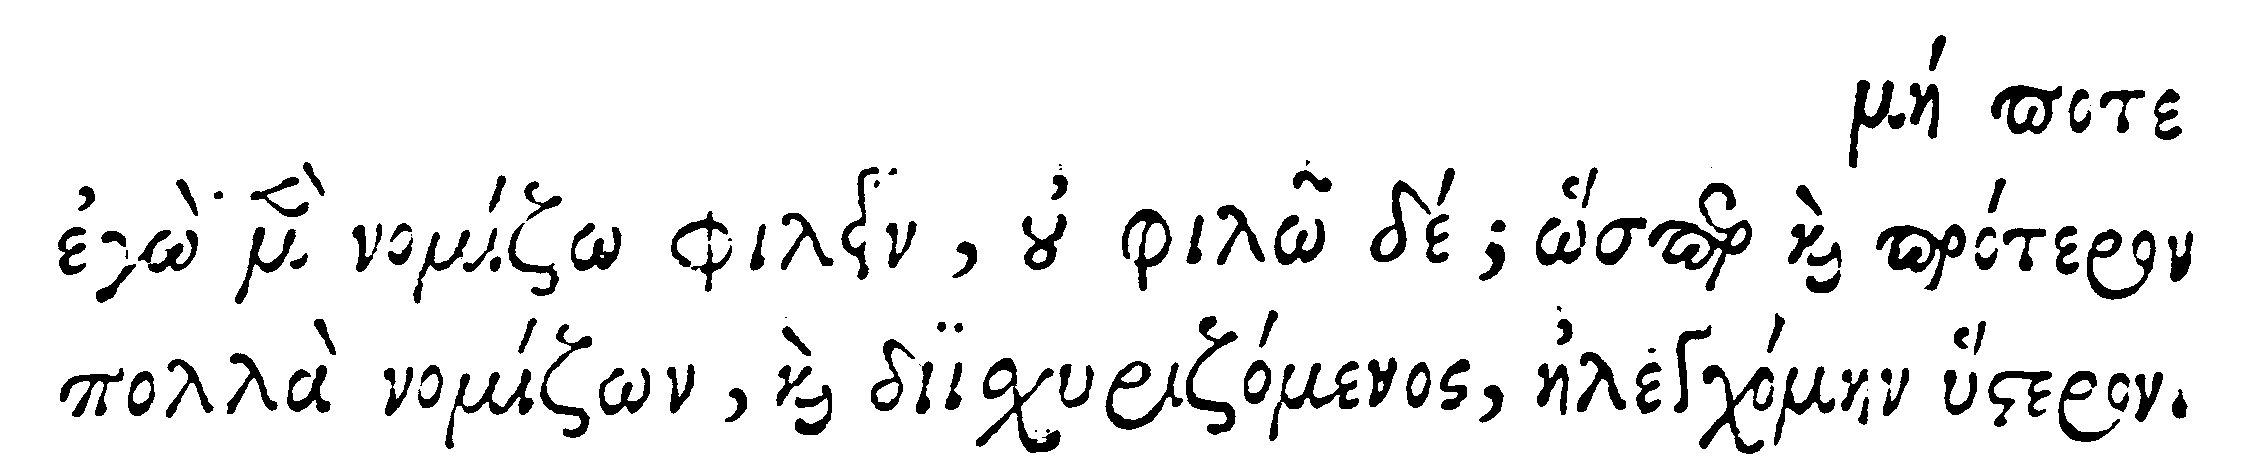 μή ποτε
ἐγὼ μὲν νομίζω φιλεῖν, οὐ φιλῶ δέ; ὥσπερ καὶ πρότερον
πολλὰ νομίζων, καὶ διϊσχυριζόμενος, ἠλεγχόμην ὕστερον.